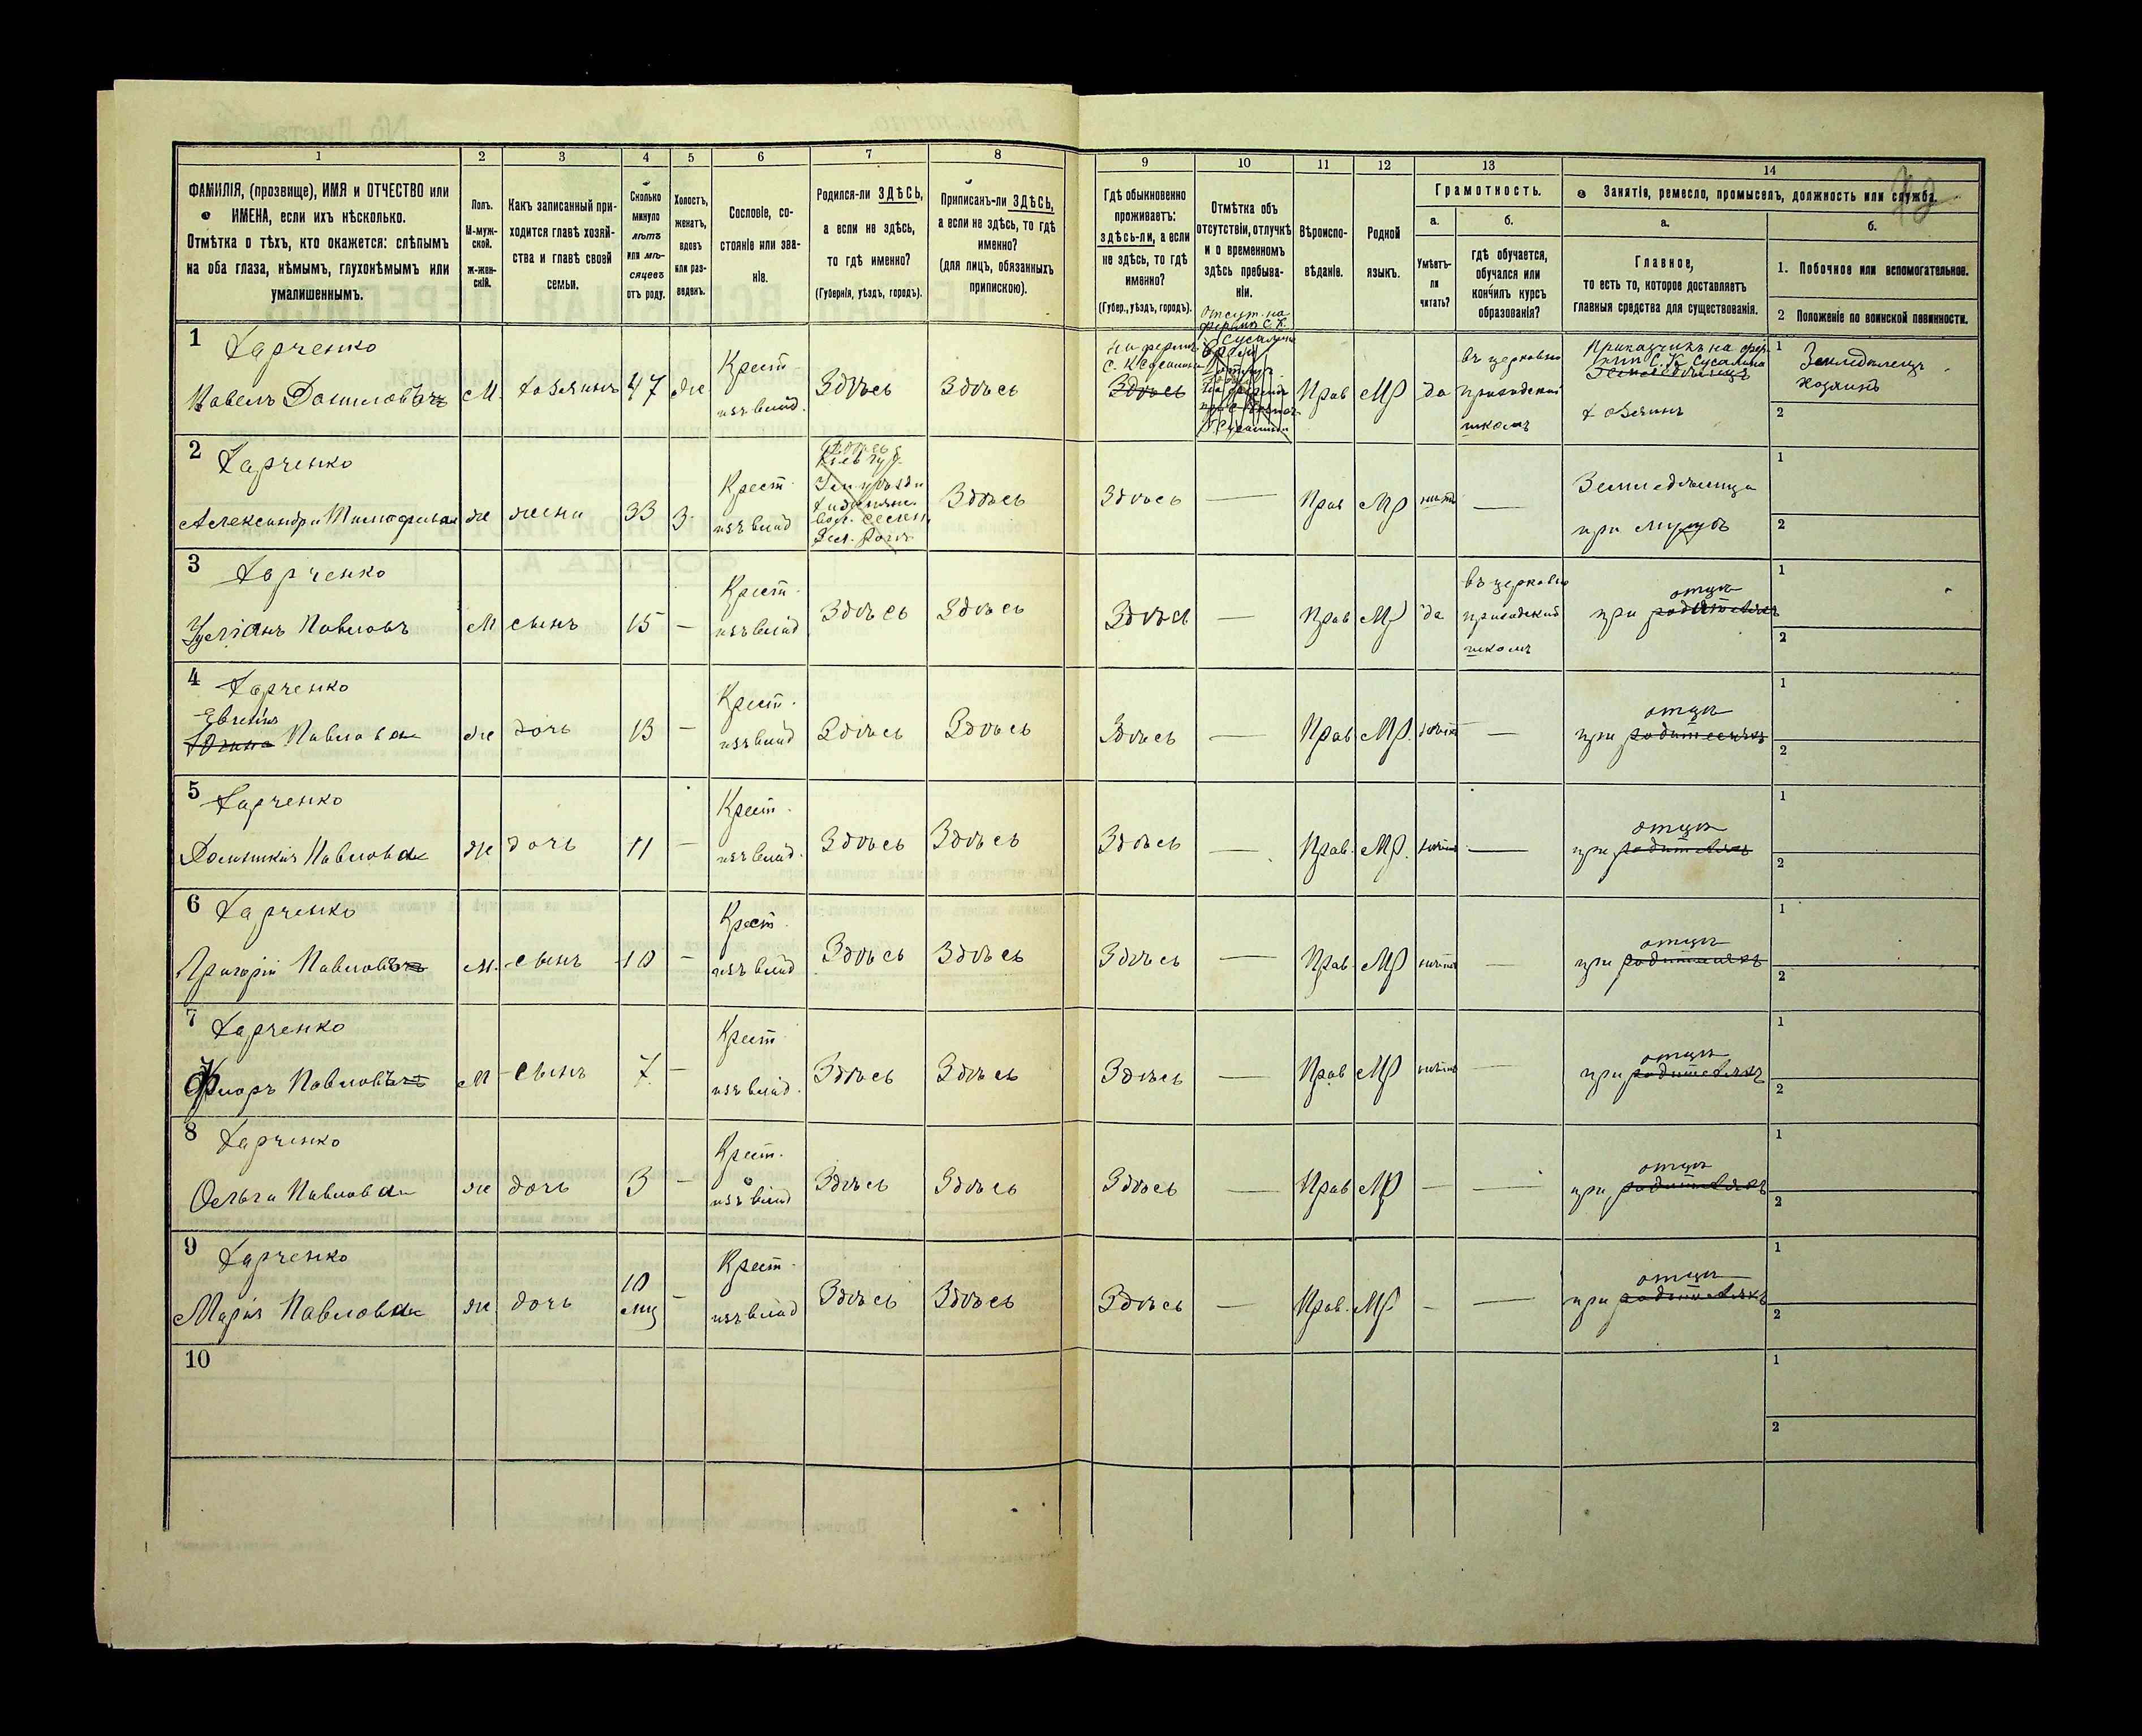 1 2 3 4 5 6 7 8 9 10 11 12 13 14
ФАМИЛІЯ, (прозвище), ИМЯ и ОТЧЕСТВО или
ИМЕНА, если ихъ нѣсколько.
Отмѣтка о тѣхъ, кто окажется: слѣпымъ
на оба глаза, нѣмымъ, глухонѣмымъ или
умалишеннымъ.
Полъ.
М-муж-
ской.
ж-жен-
скій.
Какъ записанный при-
ходится главѣ хозяй-
ства и главѣ своей
семьи.
Сколько
минуло
лѣтъ
или мѣ-
сяцевъ
отъ роду.
Холостъ,
женатъ,
вдовъ
или раз-
веденъ.
Сословіе, со-
стояніе или зва-
ніе.
Родился-ли ЗДѢСЬ,
а если не здѣсь,
то гдѣ именно?
(Губернія, уѣздъ, городъ).
Приписанъ-ли ЗДѢСЬ,
а если не здѣсь, то гдѣ
именно?
(для лицъ, обязанныхъ
припискою).
Гдѣ обыкновенно
проживаетъ:
здѣсь-ли, а если
не здѣсь, то гдѣ
именно?
(Губер., уѣздъ, городъ).
Отмѣтка объ
отсутствіи, отлучкѣ
и о временномъ
здѣсь пребыва-
ніи.
Вѣроиспо-
вѣданіе.
Родной
языкъ.
Грамотность.
а.
Умѣетъ-
ли
читать?
б.
гдѣ обучается,
обучался или
кончилъ курсъ
образованія?
Занятія, ремесло, промыселъ, должность или служба.
а.
Главное,
то есть то, которое доставляетъ
главныя средства для существованія.
б.
1. Побочное или вспомогательное.
2 Положеніе по воинской повинности.
1 Харченко
Павелъ Даниловичъ
М. хозяинъ 47 же
Крест
изъ влад.
Здѣсь Здѣсь
на ферме
С. К. Сусалина
Здѣсь
Отсут. на
ферме С. К.
Сусалина
Прав МР да
въ церковно
приходской
школѣ
Прикащикъ на фер-
ме С. К. Сусалина
хозяинъ
1 Земледѣлецъ
хозяинъ
2
2 Харченко
Александра
же жена 33 З
Крест
изъ влад
Здѣсь
Здѣсь
Здѣсь — Прав МР —
Земледѣлица
при мужѣ
1
2
3 Харченко
Павловъ
М сынъ 15 —
Крест.
изъ влад
Здѣсь Здѣсь
Здѣсь — Прав МР да
въ церковно
приходской
школѣ
отцѣ
при родителяхъ
1
2
4 Харченко
Павлова
же дочь 13 —
Крест.
изъ влад
Здѣсь Здѣсь
Здѣсь — Прав МР. —
отцѣ
при родителяхъ
1
2
5 Харченко
Павлова
же дочь 11 —
Крест.
изъ влад.
Здѣсь Здѣсь
Здѣсь — Прав. МР. —
отцѣ
при родителяхъ
1
2
6 Харченко
Григорій Павловъ
М. сынъ 10 —
Крест
изъ влад
Здѣсь Здѣсь
Здѣсь — Прав. МР —
отцѣ
при родителяхъ
1
2
7 Харченко
Флоръ Павловъ
М сынъ 7 —
Крест
изъ влад.
Здѣсь Здѣсь
Здѣсь — Прав МР —
отцѣ
при родителяхъ
1
2
8 Харченко
Ольга Павлова
же дочь 3 —
Крест.
изъ влад
Здѣсь Здѣсь
Здѣсь — Прав МР — —
отцѣ
при родителяхъ
1
2
9 Харченко
Марія Павлова
же дочь
10
мц —
Крест
изъ влад
Здѣсь Здѣсь
Здѣсь — Прав. МР — —
отцѣ
при родителяхъ
1
2
10
1
2